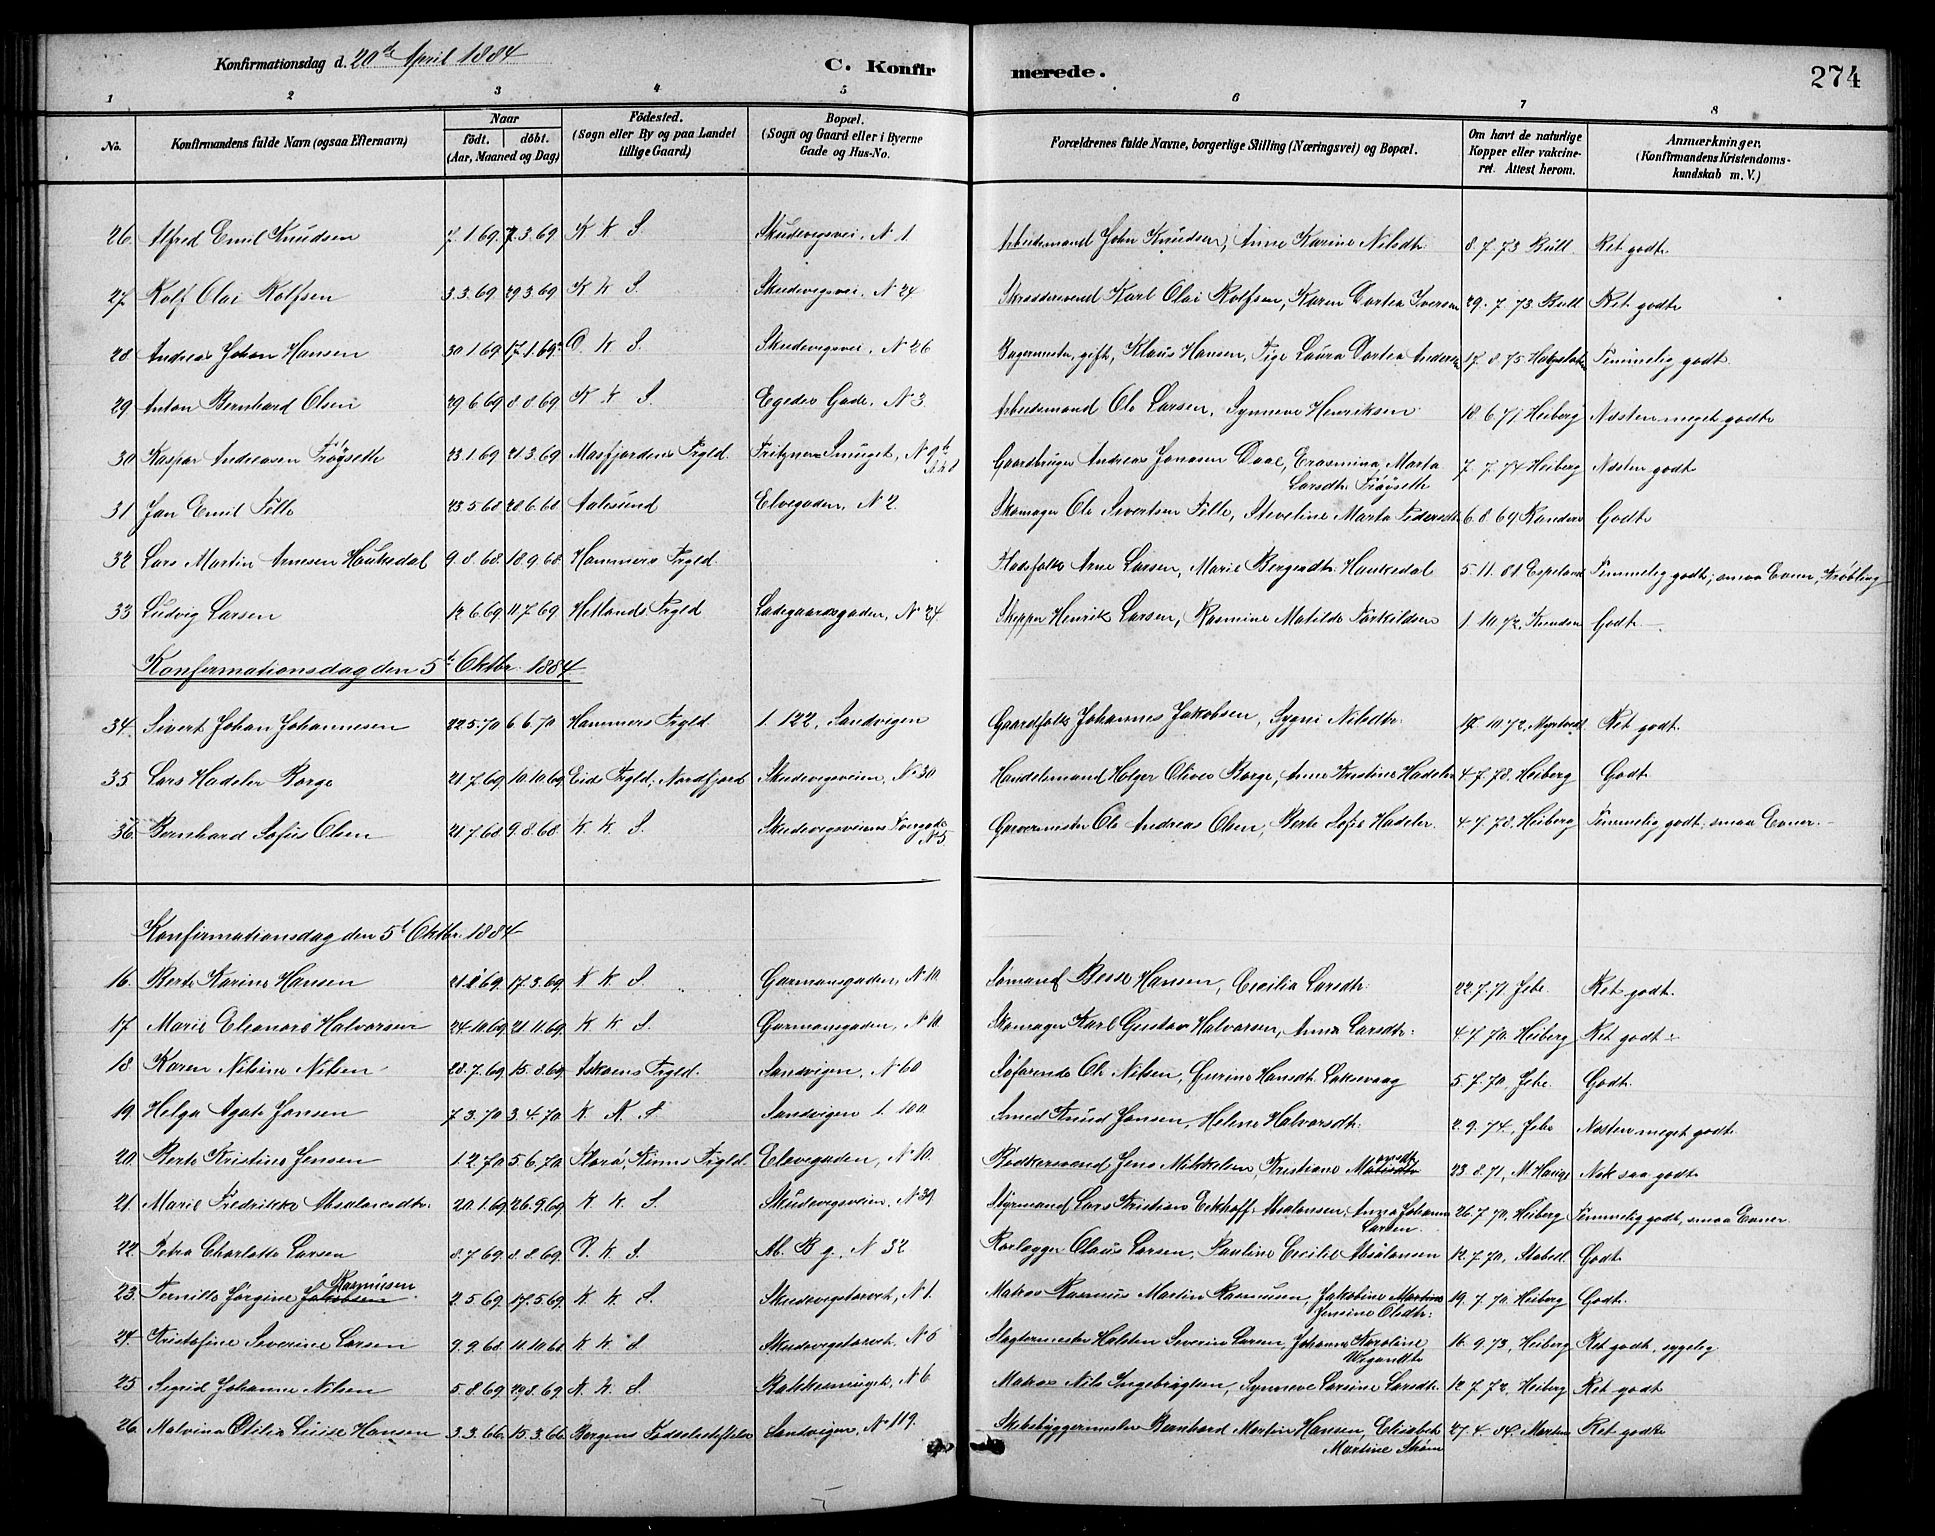 Konfirmationsdag d. 20de April 1884
C. Konfirmerede.
274
1 2 3 4 5 6 7 8
No. Konfirmandens fulde Navn (ogsaa Efternavn) Naar födt. döbt. (Aar, Maaned og Dag) Födested. (Sogn eller By og paa Landet tillige Gaard) Bopæl. (Sogn og Gaard eller i Byerne Gade og Hus-No. Forældrenes fulde Navne, borgerlige Stilling (Næringsvei) og Bopæl. Om havt de naturlige Kopper eller vakcineret. Attest herom. Anmærkninger. (Konfirmandens Kristendomskundskab m. V.)
26 Alfred Emil Knudsen 7.1.69. 7.3.69 K K S. Skudevigsvei, N 1. Arbeidsmand John Knudsen, Anne Karine Nilsdtr. 8.7.73 Bull Ret godt.
27 Rolf Olai Rolfsen 3.3.69 29.3.69 K K S. Skudevigsvei, N 24 Skræddersvend Karl Olai Rolfsen, Karen Dortea Iversen 29.7.73 Bull Ret godt
28 Andreas Johan Hansen 30.1.69 17.1.69. D. K. S. Skudevigsvei, N 26 Bagermester, gift, Klaus Hansen, Pige Laura Dortea Andersen 17.8.75 Temmelig godt
29 Anton Bernhard Olsen 29.6.69 8.8.69 K K S. Egedes Gade, N 3. Arbeidsmand Ole Larsen, Synneve Henriksen 18.6.71 Heiberg Næsten meget godt
30 Kaspar Andreasen Fröysetle 23.1.69 21.3.69 Masfjordens Prgld. Fritzners Smuget, N 9 Gaardbruger Andreas Jonasen Daae, Erasmina Marta Larsdtr. Fröysetle 7.7.74 Heiberg Næsten godt
31 Jan Emil Tille 23.5.68 28.6.68 Aalesund Elvegaden, N 2. Skomager Ole Sivertsen Tille, Steveline Marta Pedersdtr 6.8.69 Randers Godt
32 Lars Martin Arnesen Haukedal 9.8.68. 18.9.68. Hammers Prgld. Arne Larsen, Marie Bergesdtr. Haukedal 5.11.81 Espeland Temmelig godt; smaa Evner,
33 Ludvig Larsen 12.6.69 11.7.69 Hetlands Prgld Ladegaardsgaden, N 24. Skipper Henrik Larsen, Rasmine Matilde Torkildsen 1.10.72, Knudsen Godt.
Konfirmationsdag den 5te Oktbr. 1884
34. Sivert Johan Johannesen 22.5.70 6.6.70 Hammers Prgld 1. 122, Sandvigen Gaardfolk Johannes Jakobsen, Sygni Nilsdtr. 17.10.72, Myrtvedt Ret godt.
35 Lars Hadeler Borge 21.7.69 10.10.69 Eids Prgld; Nordfjord Skudevigsveien, No 30 Handelsmand Holger Olives Borge, Anne Kristine Hadeler 4.7.78. Heiberg Godt.
36. Bernhard Sofus Olsen 21.7.68 9.8.68. K K. S. Skudevigsveiens Tvergade N 5. Gravermester Ole Andreas Olsen, Berte Sofie Hadeler. 4.7.78, Heiberg Temmelig godt; smaa Evner.
Konfirmationsdag den 5t Oktbr. 1884
16. Berte Karine Hansen 21.1.69 17.3.69 K K. S. Garmansgaden, N 10 Sömand Besse Hansen, Cecilia Larsdtr. 22.7.71 Jebe. Ret godt.
17 Marie Eleanore Halvorsen 24.10.69 21.11.69. K K S. Garmansgaden, N 10. Skomager Karl Gustav Halvorsen, Anna Larsdtr. 4.7.70. Heiberg Ret godt
18 Karen Nilsine Nilsen 28.7.69 15.8.69 Askøens Prgld. Sandvigen, N 60 Söfarende Ole Nilsen, Gurine Hansdtr. Laksevaag 5.7.70, Jebe. Godt.
19 Helga Agate Jansen 7.3.70 3.4.70 K. N. S Sandvigen 1. 100 Smed Knud Jansen, Helene Halvorsdtr. 2.9.74, Jebe Næsten meget godt.
20. Berte Kristine Jensen 1.2.70 5.6.70 Florö, Kinns Prgld. Elvegaden, N 10. Bödkersvend Jens Mikkelsen, Kristiane 23.8.71, M. Hauge Nok saa godt
21. Marie Fredrikke Absalonsdtr. 20.1.69 26.9.69 K K. S. Skudevigsveien, N 39. Styrmand Lars Kristian Eckhoff Absalonsen, Anna Johanna Larsen. 26.7.70, Heiberg Temmelig godt, smaa Evner.
22. Petra Charlotte Larsen 8.7.69 8.8.69 D. K. S. Ab. B g. N 32 Rorlægger Claus Larsen, Pauline Cecilie Absalonsen 12.7.70, Stabell Godt.
23. Pernille Jørgine Jakobsen Rasmusen. 2.5.69 17.5.69 K K. S. Skudevigstorvet, N 1. Matros Rasmus Martin Rasmusen, Jakobine Martine Jensine Olsdtr. 19.7.70. Heiberg Godt.
24. Kristofine Severine Larsen 9.9.68 11.10.68 K K. S Skudevigstorvet, N 6 Slagtermester Halsten Severin Larsen, Johanne Karoline Wigandtr 16.9.73, Heiberg Ret godt, sygelig
25 Sigrid Johanne Nilsen 5.8.69 29.8.69 K. K. S Bakkesmuget, N 6 Matros Nils Ingebrigtsen, Synneve Larsine Larsdtr. 12.7.72, Heiberg Ret godt
26. Malvina Otilia Luise Hansen 3.3.66 15.3.66 Bergens Födselsstiftelse Sandvigen, No 119. Skibsbyggermester Bernhard Martin Hansen, Elisabet Martine Ström 27.4.84, Martens Ret godt